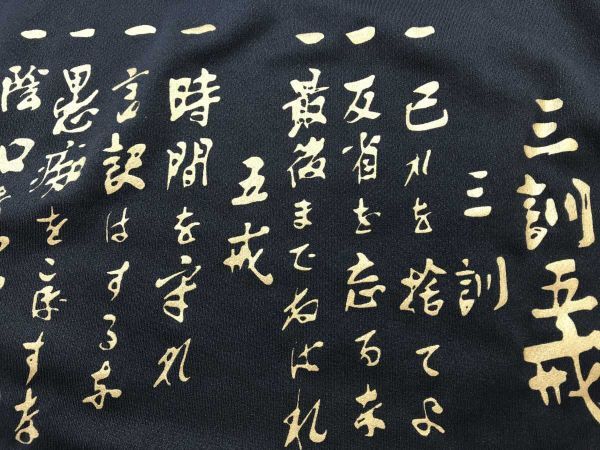 三訓五戒
三訓
一 己れを捨てよ
一 反省を忘るな
一 最後まで
五戒
一 時間を守れ
一 言訳はするな
一 愚痴をこぼすな
一 陰口